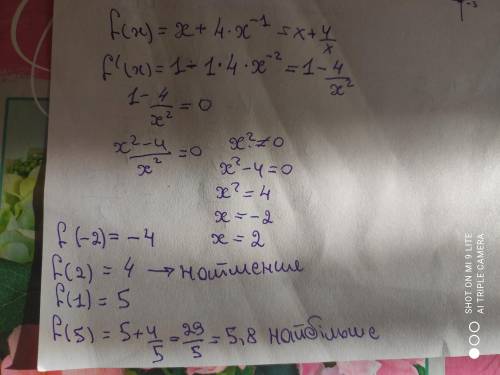 f(x) = x + 4 · x⁻¹ = x + 4/x
f'(x) = 1 - 1 · 4 · x⁻² = 1 - 4/x²
1 - 4/x² = 0
(x² - 4)/x² = 0
x² ≠ 0
x² - 4 = 0
x² = 4
x = -2
x = 2
f(-2) = -4
f(2) = 4 → найменше
f(1) = 5
f(5) = 5 + 4/5 = 29/5 = 5,8 найбільше
SHOT ON MI 9 LITE
AI TRIPLE CAMERA